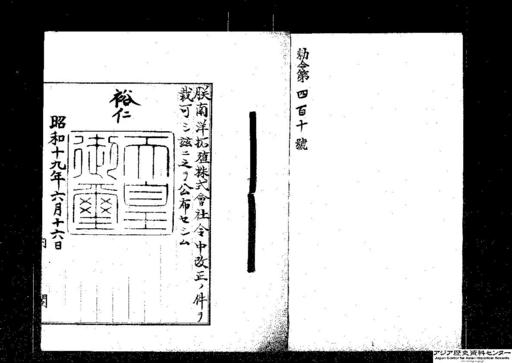 勅令第四百十號
朕南洋拓殖株式會社令中改正ノ件ヲ
裁可シ玆ニ之ヲ公布セシム
裕仁
天皇
御璽
昭和十九年六月十六日
内閣
アジア歴史資料センター
Japan Center for Asian Historical Records